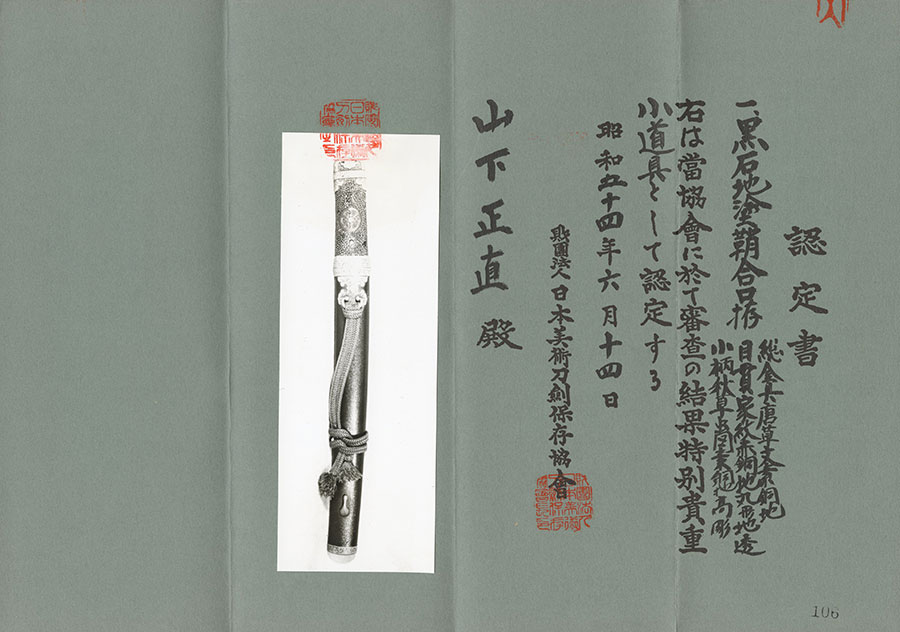 認定書
一、黒石地塗鞘合口拵
総金具唐草文素銅地
目貫家紋赤銅地丸形地透
小柄秋草虫図素銅地高彫
右は當協會に於て審査の結果特别貴重
小道具として認定する
昭和五十四年六月十四日
財團法人日本美術刀劍保存協會
山下正直殿
106